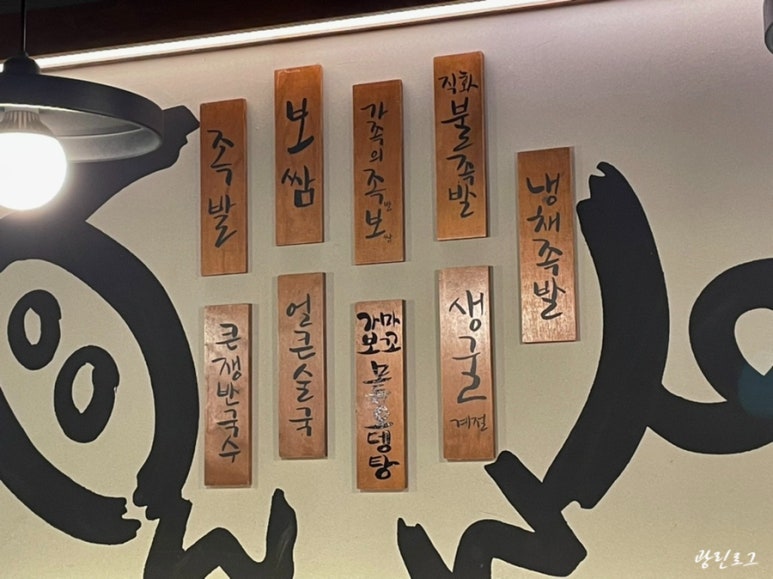 족발
보쌈
가족의 족발보쌈
직화 불족발
냉채족발
큰쟁반국수
얼큰술국
가마
보꼬
생굴
계절
광린로그